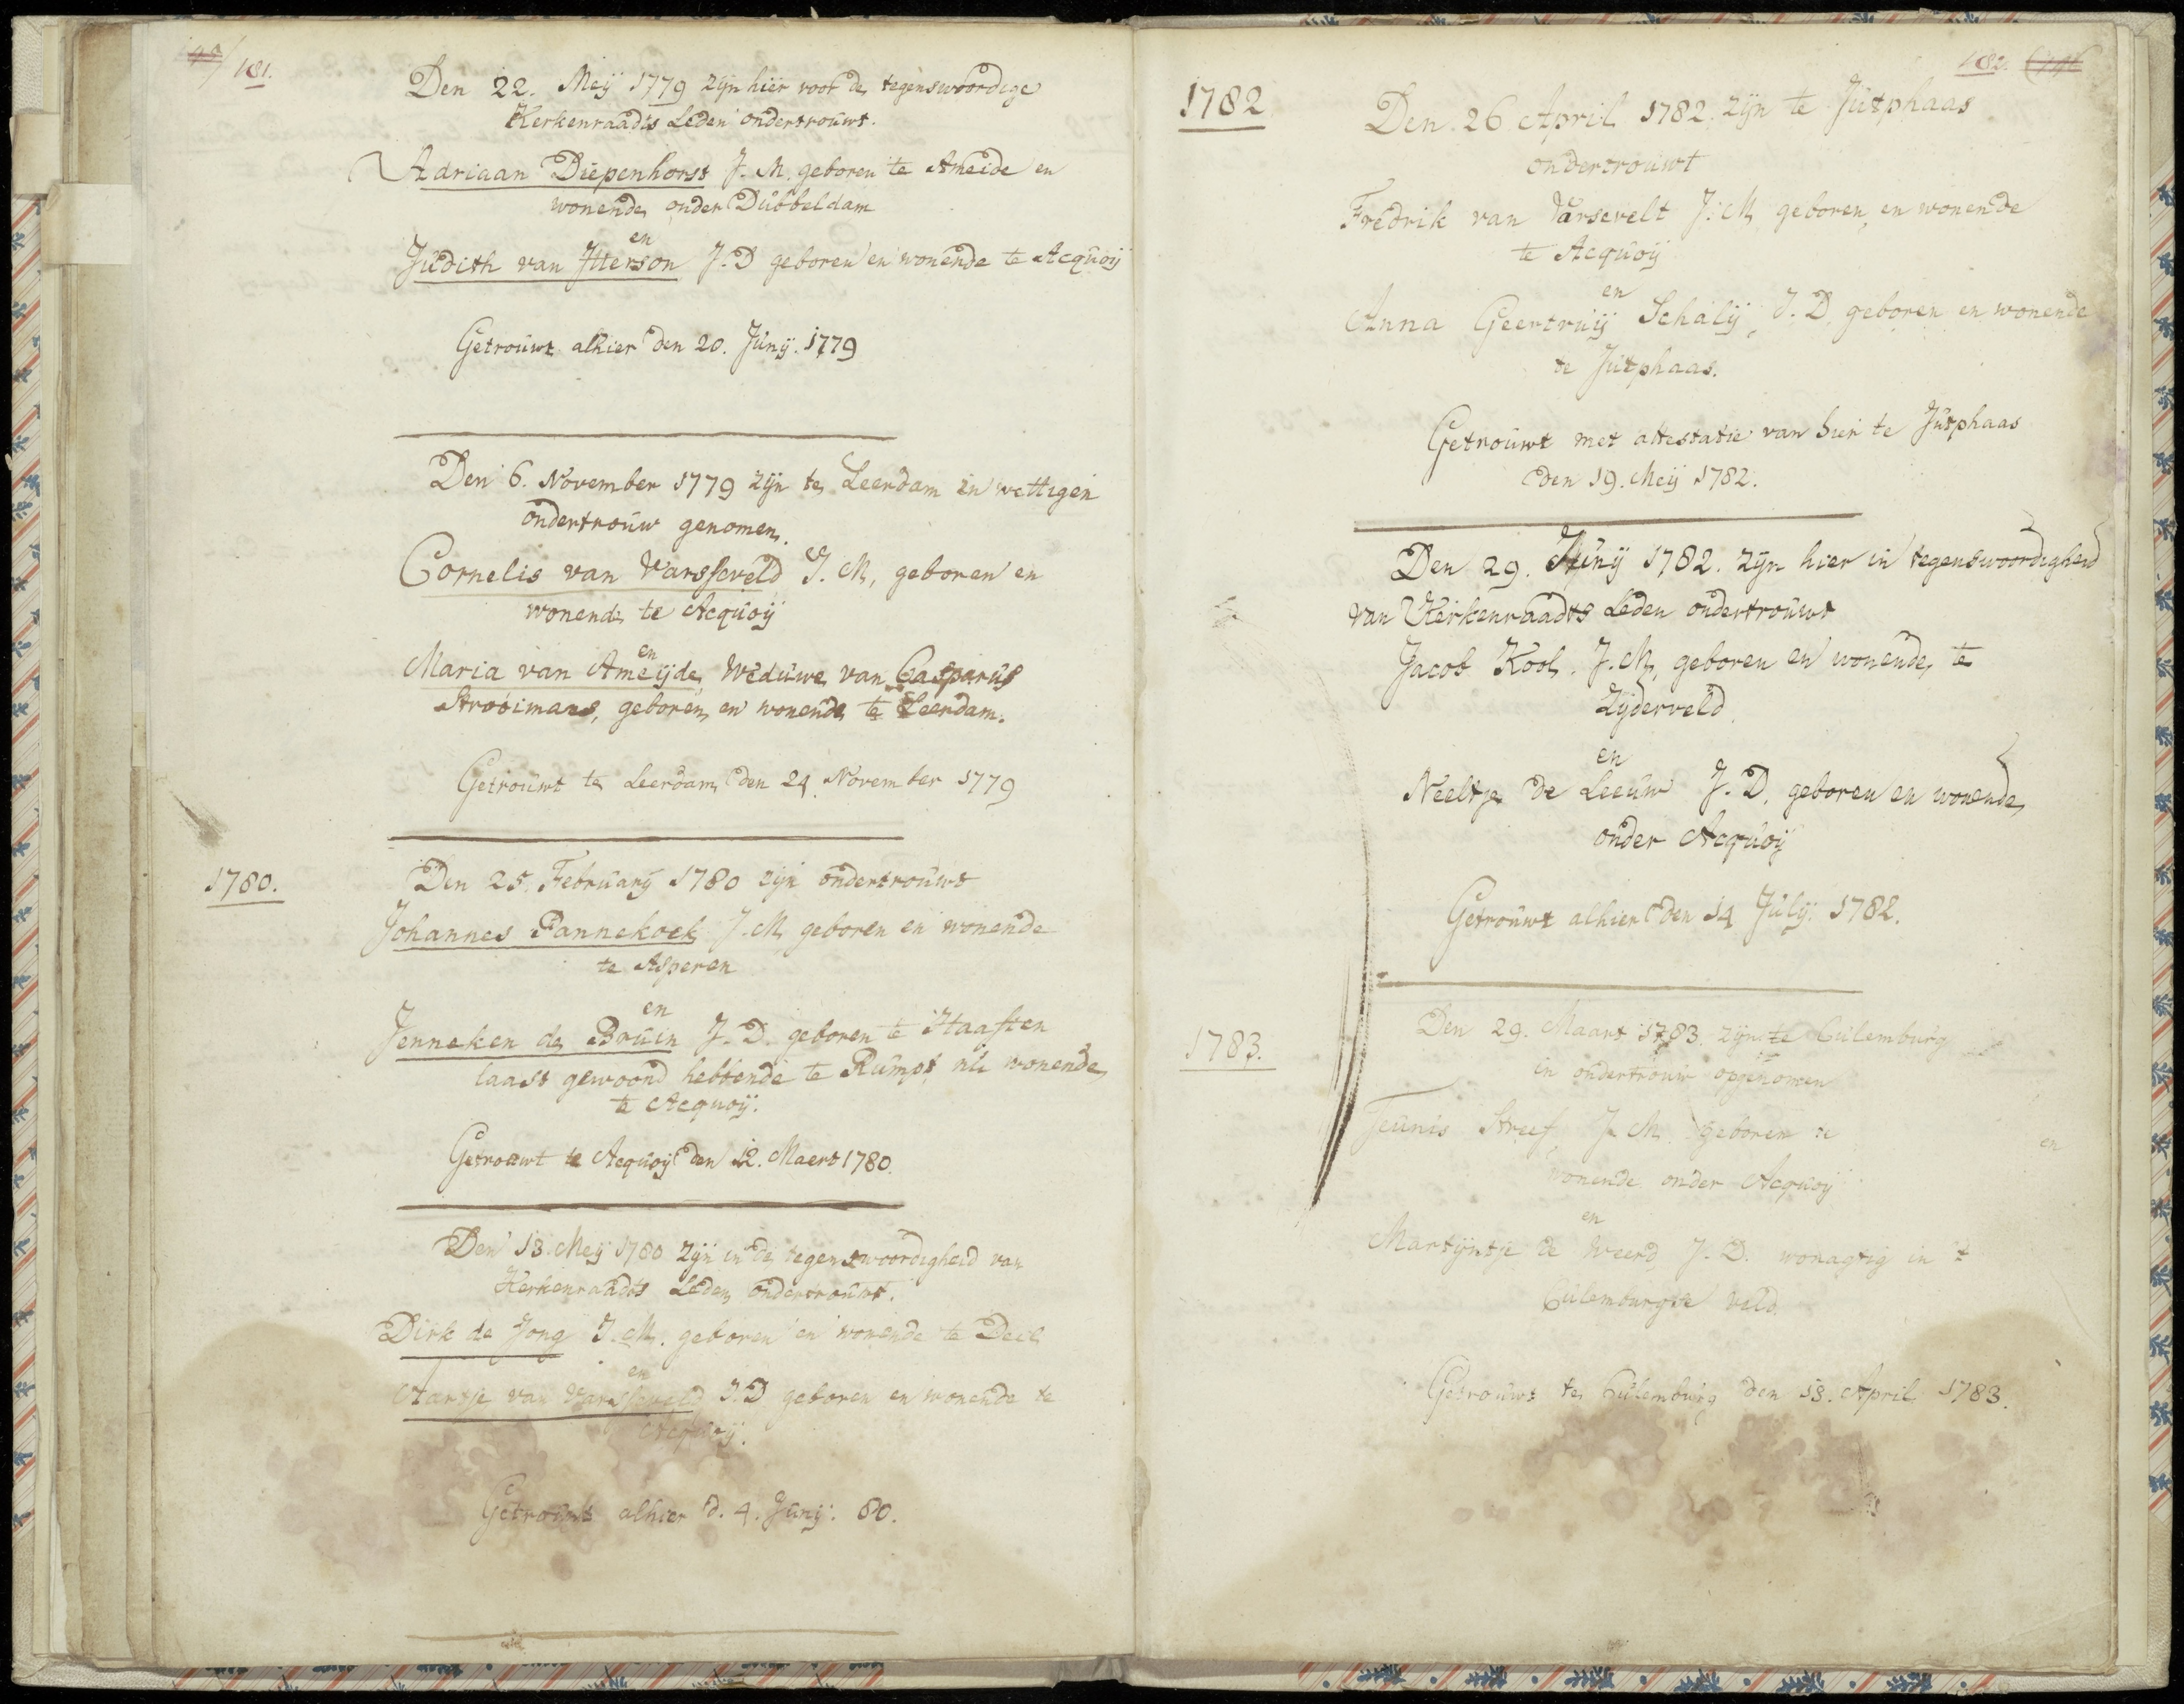 181.
Den 22. Meij 1779 zijn hier voor de tegenswoordige
Kerkenraadts Leden ondertrouwt.
Adriaan Diepenhorst J. M. geboren te Ameide en
wonende onder Dubbeldam
en
Judith van Itterson J. D geboren en wonende te Acquoij
Getrouwt alhier den 20. Junij. 1779
Den 6. November 1779 zijn te Leerdam in wettigen
ondertrouw genomen.
Cornelis van Varsseveld J. M, geboren en
wonende te Acquoij
en
Maria van Ameijde, Weduwe van Casparus
Strooimans, geboren en wonende te Leerdam.
Getrouwt te Leerdam den 24. November 1779
1780.
Den 25. Februarij 1780 zijn ondertrouwt
Johannes Pannekoek J. M, geboren en wonende
te Asperen
en
Jenneken de Bruin J. D. geboren te Haaften
laast gewoond hebbende te Rumpt nu wonende
te Acquoij.
Getrouwt te Acquoij den 12. Maert 1780.
Den 13. Meij 1780 zijn in de tegenswoordigheid van
Kerkenraadts Leden ondertrouwt.
Dirk de Jong J. M. geboren en wonende te Deil
en
Aartje van Varsseveld J. D geboren en wonende te
Acquoij.
Getrouwt alhier d. 4. Junij. 80.
182.
1782
Den 26 April 1782. zijn te Jutphaas
ondertrouwt
Fredrik van Varsevelt J. M, geboren en wonende
te Acquoij
en
Anna Geertruij Schalij, J. D, geboren en wonende
te Jutphaas.
Getrouwt met attestatie van hier te Jutphaas
den 19. Meij 1782.
Den 29. Junij 1782. zijn hier in tegenswoordigheid
van Kerkenraadts Leden ondertrouwt
Jacob Kool. J. M, geboren en wonende te
Zijderveld
en
Neeltje de Leeuw J. D. geboren en wonende
onder Acquoij
Getrouwt alhier den 14 Julij. 1782.
1783.
Den 29. Maart 1783. zijn te Culemburg
in ondertrouw opgenomen
Teunis Streef, J. M. geboren te en
wonende onder Acquoij
en
Martijntje de Weerd J. D. wonagtig in 't
Culemburgse Veld.
Getrouwt te Culemburg den 13. April 1783.